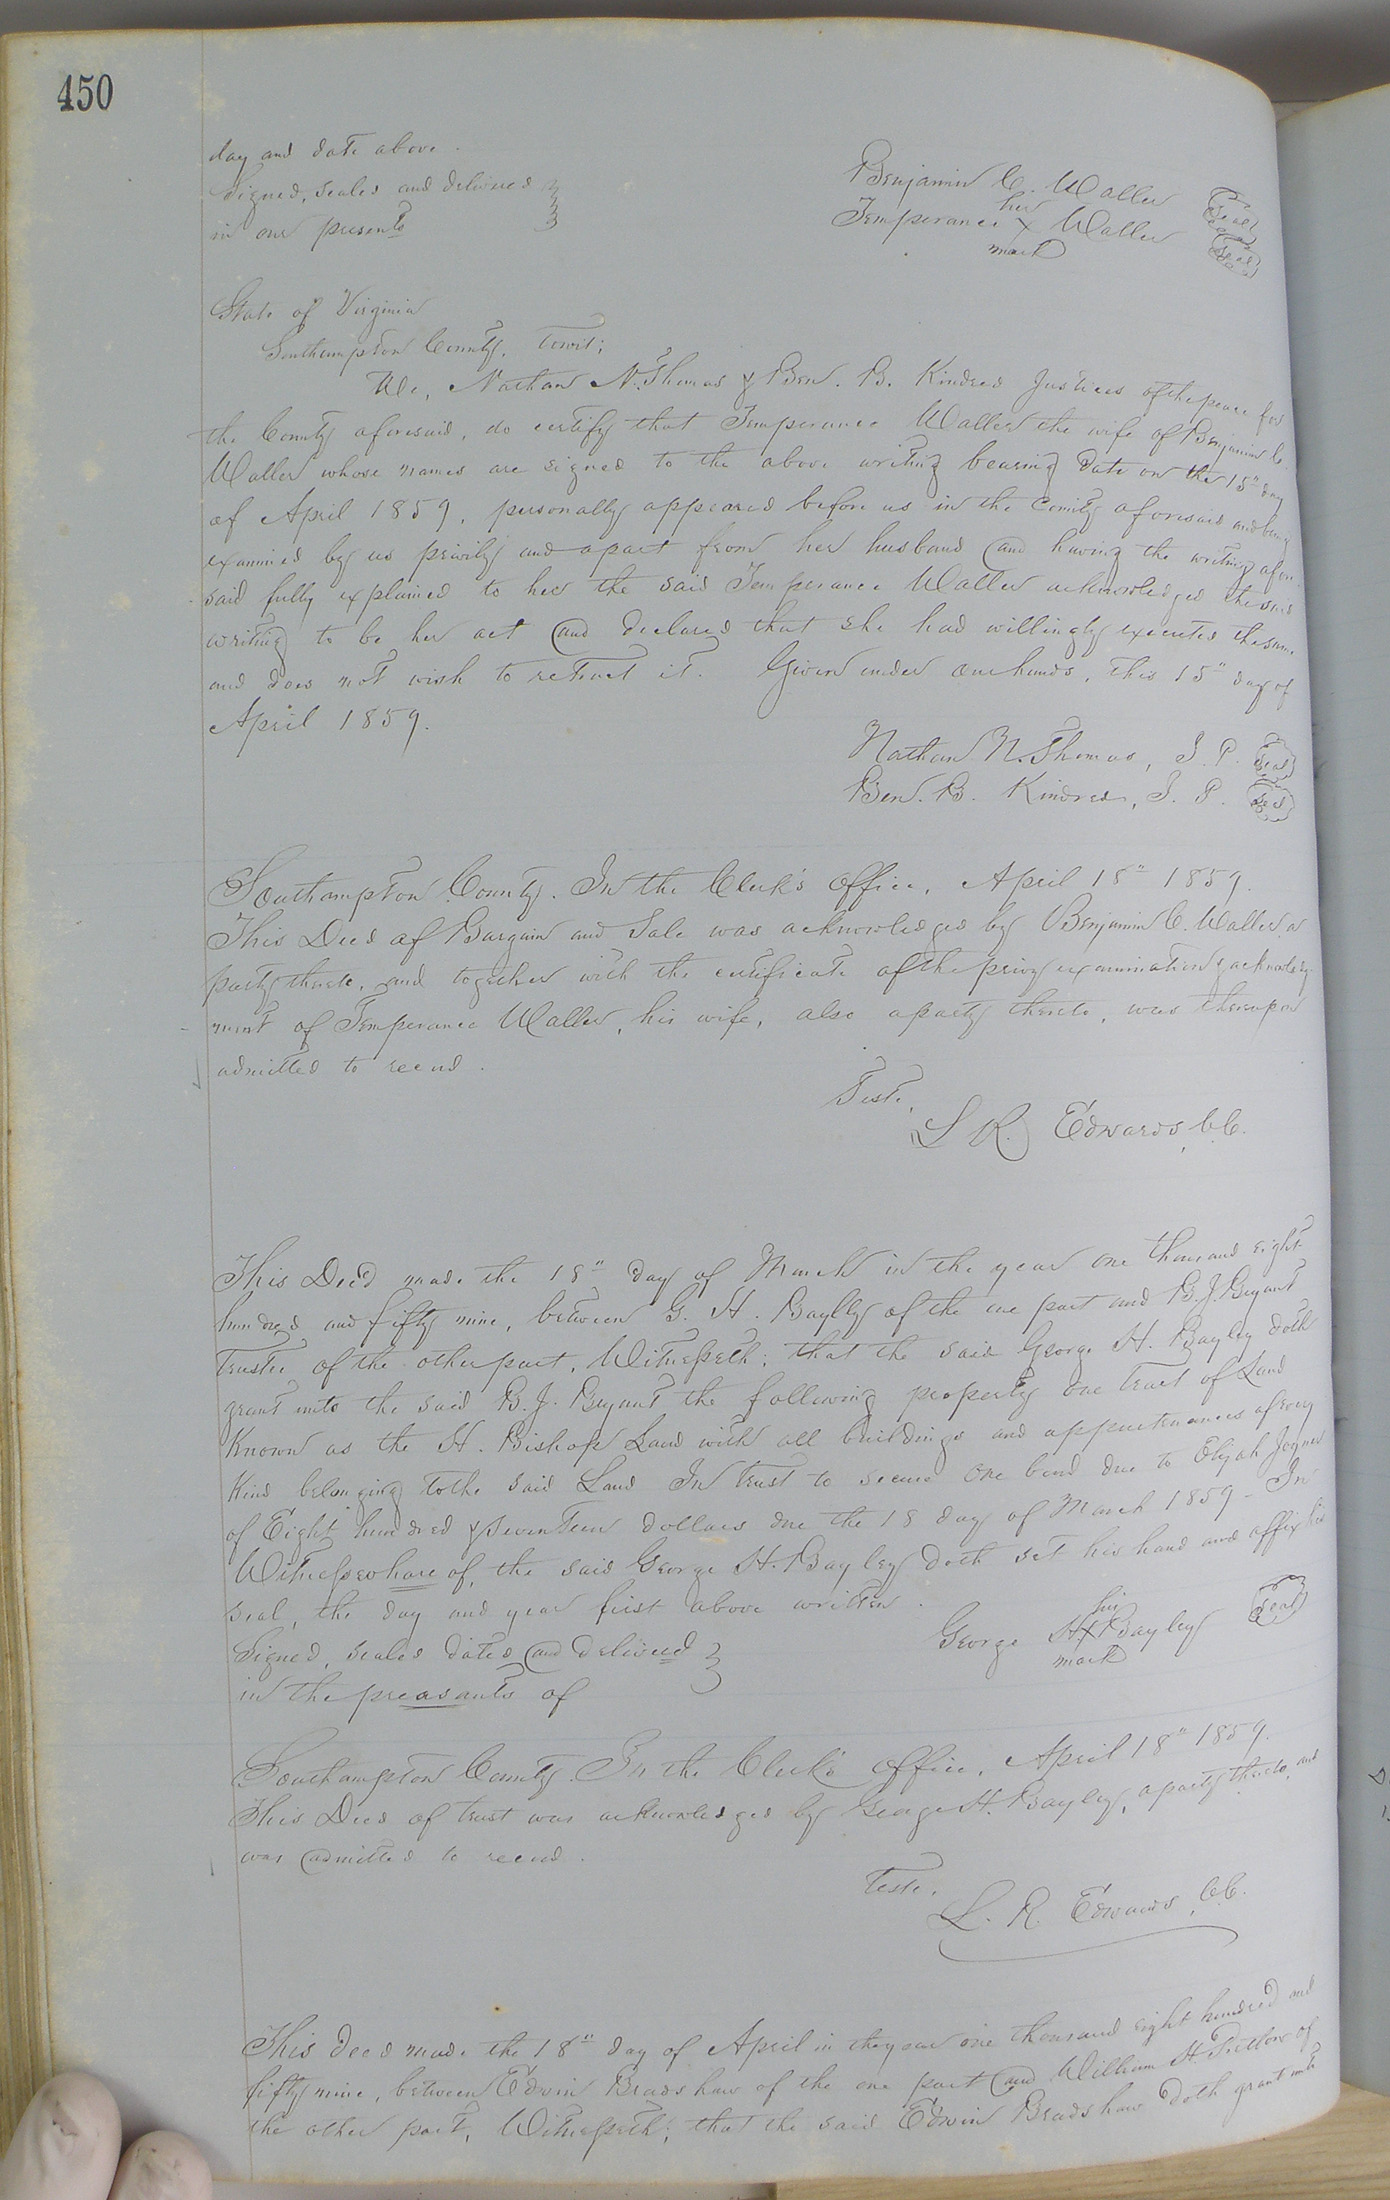 450
day and date above.
Signed, sealed and delivered
in our presents
Benjamin C. Waller Seal
her
Temperance X Waller Seal
mark
State of Virginia
Southampton County, Towit;
We, Nathan N. Thomas & Ben. B. Kindred Justices of the peace for
the County aforesaid, do certify that Temperance Waller the wife of Benjamin C.
Waller whose names are signed to the above writing bearing date on the 15" day
of April 1859, personally appeared before us in the County aforesaid and being
examined by us privily and apart from her husband and having the writing afore
said fully explained to her the said Temperance Waller acknowledged the said
writing to be her act and declared that she had willingly executed the same
and does not wish to retract it. Given under our hands, this 15" day of
April 1859.
Nathan N. Thomas, J. P. Seal
Ben. B. Kindred, J. P. Seal
Southampton County. In the Clerk's office, April 18" 1859.
This Deed of Bargain and Sale was acknowledged by Benjamin C. Waller a
party thereto, and together with the certificate of the privy examination & acknowledg-
ment of Temperance Waller, his wife, also a party thereto, was thereupon
admitted to record.
Teste,
L R. Edwards, C.C.
This Deed made the 18" day of March in the year one thousand eight
hundred and fifty nine, between G. H. Baylly of the one part and B. J. Bryant
Trustee of the other part, Witnesseth; that the said George H. Bayley doth
grant unto the said B. J. Bryant the following property one tract of Land
Known as the H. Bishop Land with all buildings and appurtenances of every
Kind belonging to the said Land In trust to secure one bond due to Elijah Joyner
of Eight hundred & Seventeen dollars due the 18 day of March 1859 - In
Witnesswhare of, the said George H. Bayley doth set his hand and affix his
seal, the day and year first above written.
Signed, sealed dated and delivered
in the preasants of
his
George H X Bayley Seal
mark
Southampton County. In the Clerk's office, April 18" 1859.
This Deed of trust was acknowledged by George H. Bayley, a party thereto, and
was admitted to record.
Teste,
L. R. Edwards, C.C.
This deed made the 18" day of April in the year one thousand eight hundred and
fifty nine, between Edwin Bradshaw of the one part and William H. Pretlow of
the other part, Witnesseth; that the said Edwin Bradshaw doth grant unto